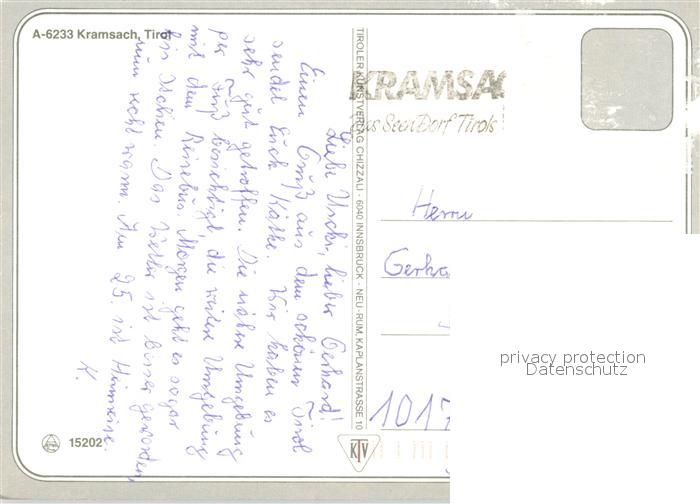 A-6233 Kramsach, Tirol
Liebe Uschi, lieber Gerhard!
Einen Gruß aus dem schönen Tirol
sendet Euch Käthe. Wir haben es
sehr gut getroffen. Die nähere Umgebung
per Fuß besichtigt, die weitere Umgebung
mit dem Reisebus. Morgen geht es sogar
bis Italien. Das Wetter ist besser geworden,
nun recht warm. Am 25. ist Heimreise.
K.
15202
TIROLER KUNSTVERLAG CHIZZALI · 6040 INNSBRUCK - NEU-RUM, KAPLANSTRASSE 10
KTV
KRAMSAC
Das SeenDorf Tirols
Herrn
Gerha
1017
privacy protection
Datenschutz